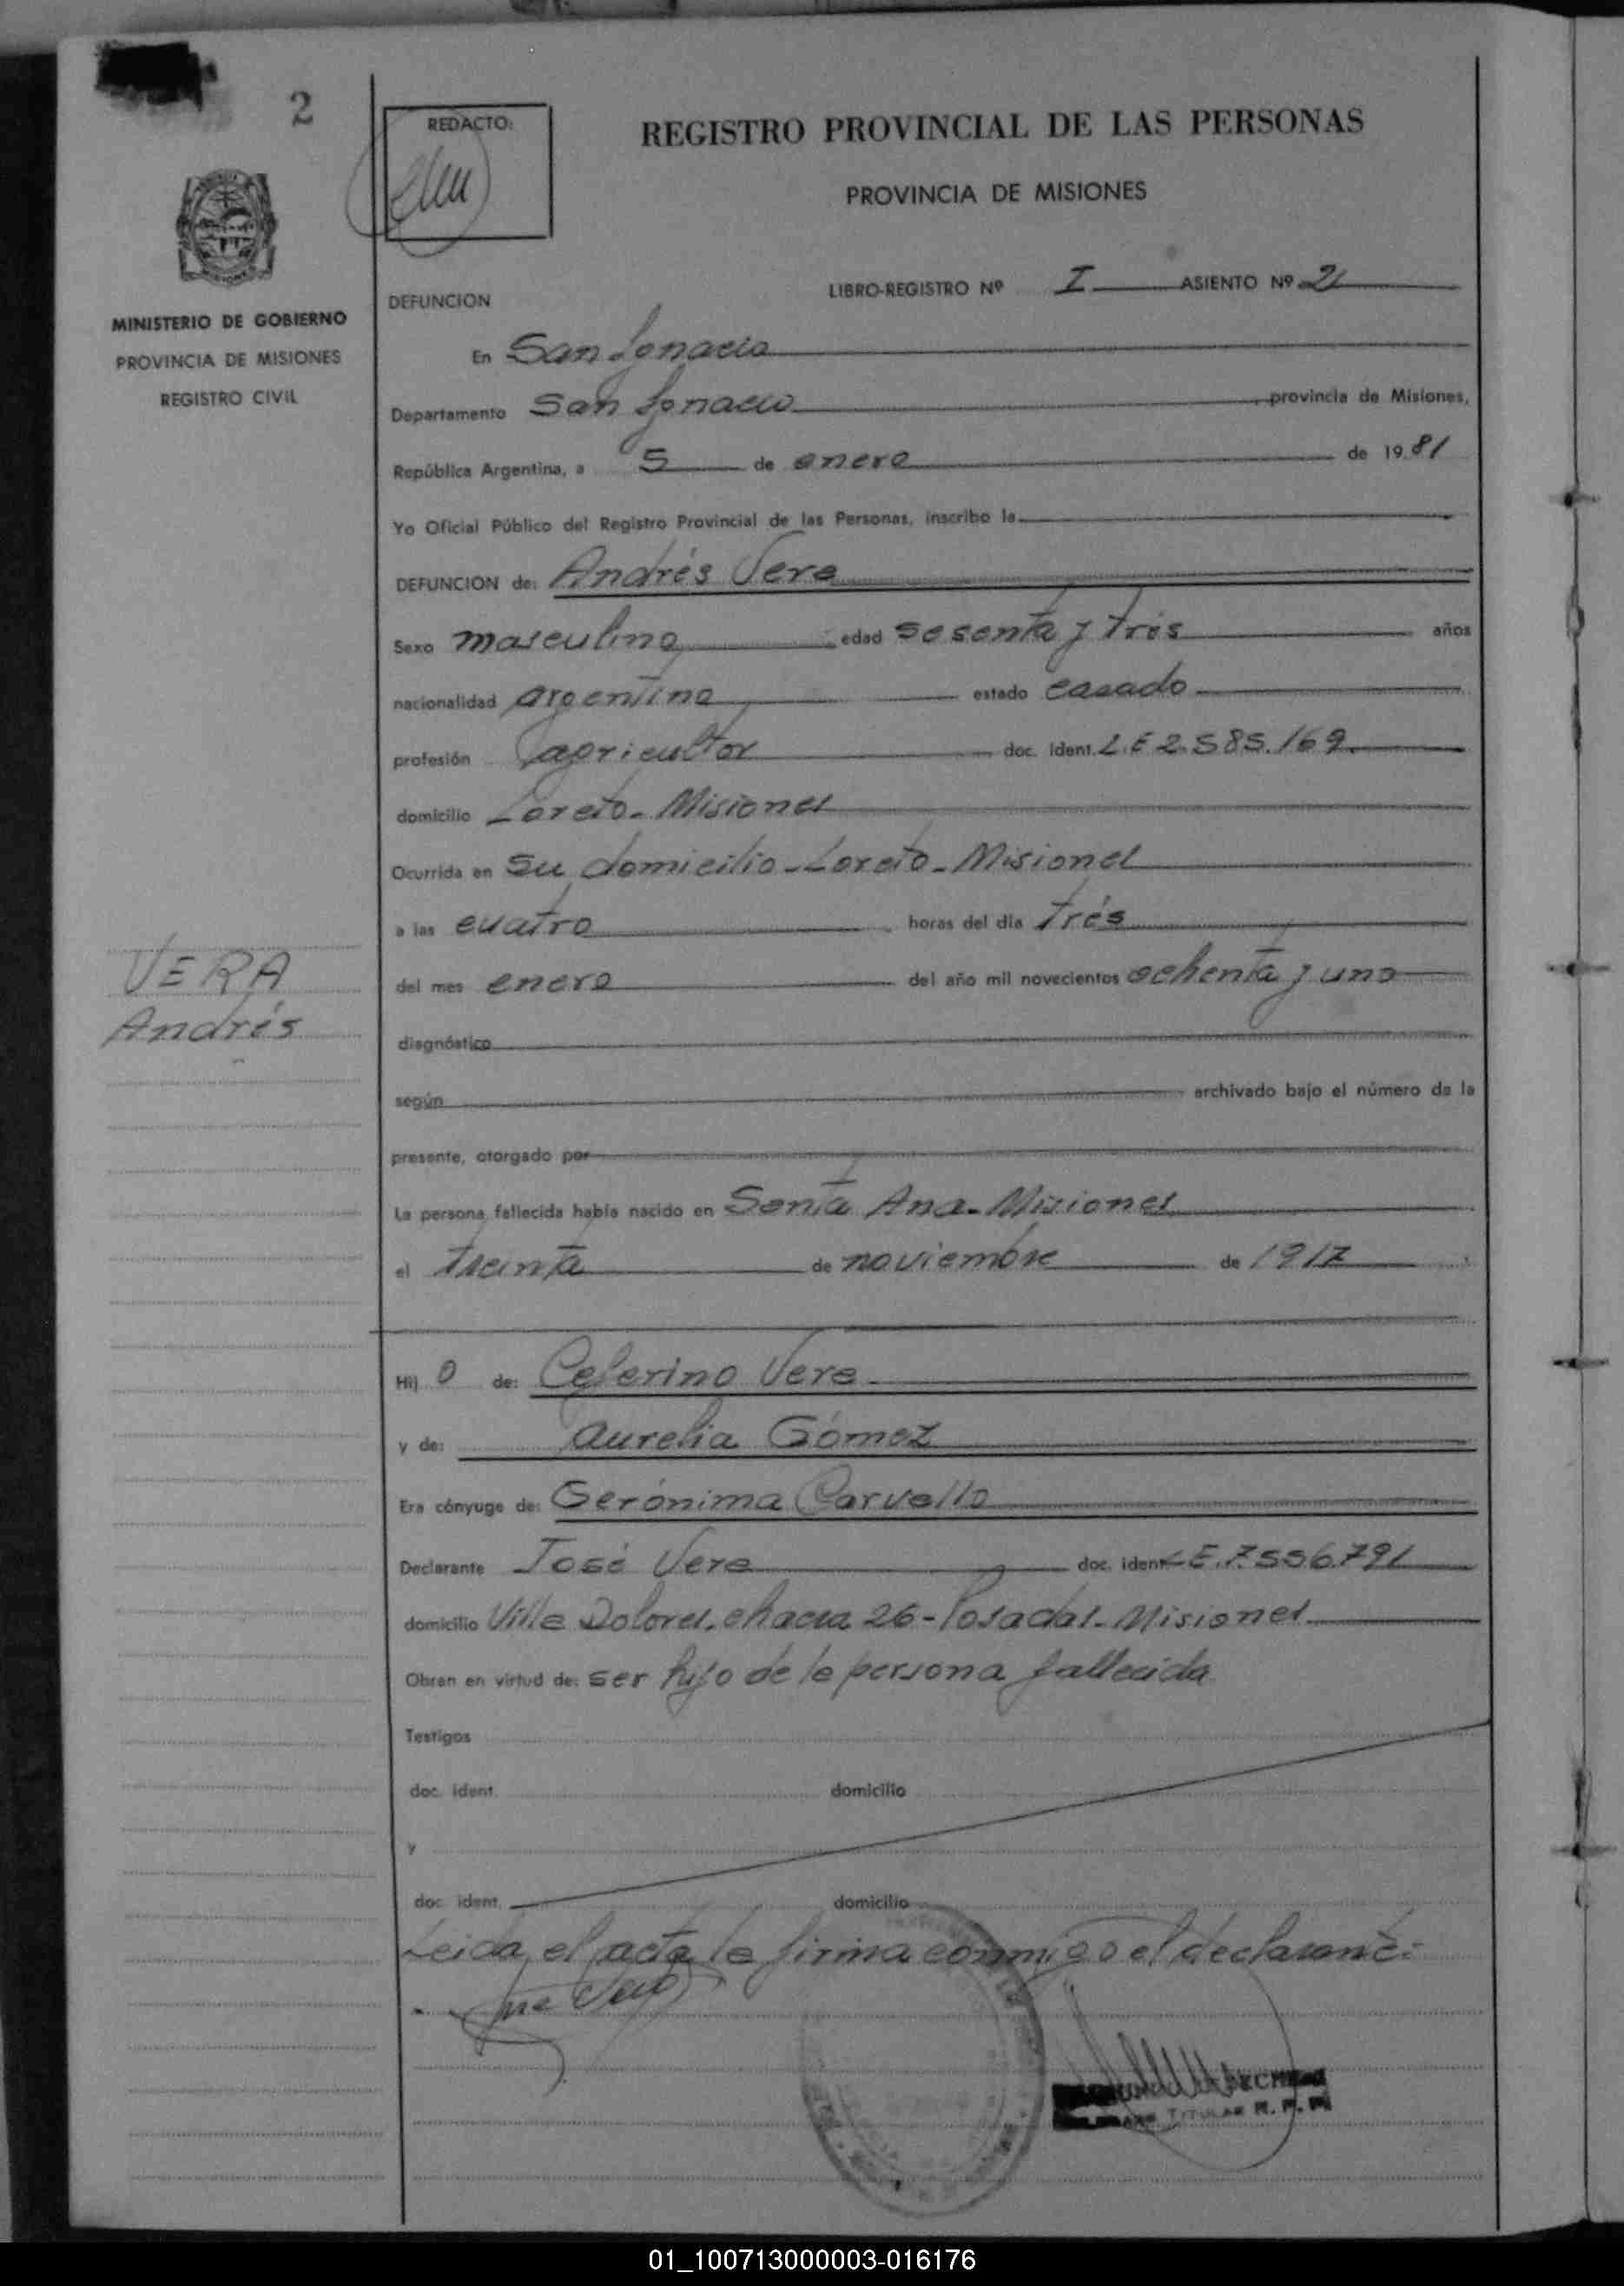 2
REDACTO:
REGISTRO PROVINCIAL DE LAS PERSONAS
PROVINCIA DE MISIONES
MINISTERIO DE GOBIERNO
PROVINCIA DE MISIONES
REGISTRO CIVIL
LIBRO-REGISTRO Nº I ASIENTO Nº 2
DEFUNCION
En San Ignacio
Departamento San Ignacio provincia de Misiones,
República Argentina, a 5 de enero de 1981
Yo Oficial Público del Registro Provincial de las Personas, inscribo la
DEFUNCION de: Andrés Vera
Sexo masculino edad sesenta y trés años
nacionalidad argentina estado casado
profesión agricultor doc. Ident. L.E 2.585.169
domicilio Loreto - Misiones
Ocurrida en su domicilio - Loreto - Misiones
a las cuatro horas del día trés
VERA
Andrés
del mes enero del año mil novecientos ochenta y uno
diagnóstico
según archivado bajo el número de la
presente, otorgado por
La persona fallecida había nacido en Santa Ana - Misiones
el treinta de noviembre de 1917
Hij o de: Ceferino Vera
y de: Aurelia Gómez
Era cónyuge de: Gerónima Carvallo
Declarante José Vera doc. ident. L E. 7.556.791
domicilio Villa Dolores, chacra 26 - Posadas - Misiones
Obran en virtud de: ser hijo de la persona fallecida
Testigos
doc. ident. domicilio
y
doc. ident. domicilio
Leida el acta la firma conmigo el declarante:
TITULAR R. P. P.
01_100713000003-016176